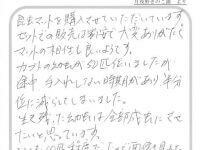 昆虫マットを購入させていただいています。
セットでの販売は割安で大変ありがたく
マットの相性も良いようです。
カブトの幼虫が50匹位いましたが
途中手入れしない時期があり半分
位に減らしてしまいました。
生き残った幼虫は全部成虫にさせ
たいと思っています。